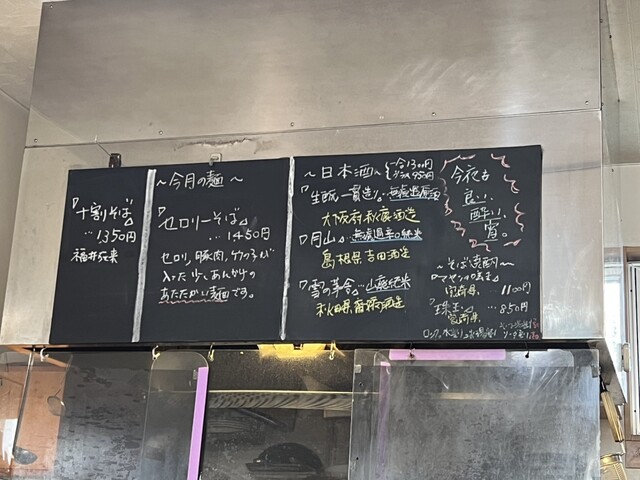 『十割そば』
…1350円
福井在来
〜今月の麺〜
『セロリーそば』
…1450円
セロリ、豚肉、竹の子が
入った少々、あんかけの
あたたかい麺です。
〜日本酒〜
一合1300円
グラス950円
『生酛一貫造り』…無濾過原酒
大阪府秋鹿酒造
『月山』…無濃過辛口純米
島根県吉田酒造
『雪の茅舎』…山廃純米
秋田県齋彌酒造
今夜も
良い、
酔い、
宵。
〜そば焼酎〜
宮崎県
1100円
『珠玉』…850円
宮崎県